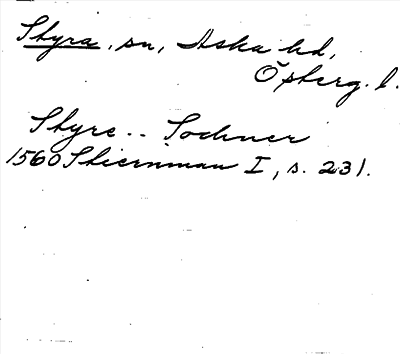 Styra, sn, Aska hd,
Östergl.
Styre .. Sochner
1560 Stiernman I, s. 231.